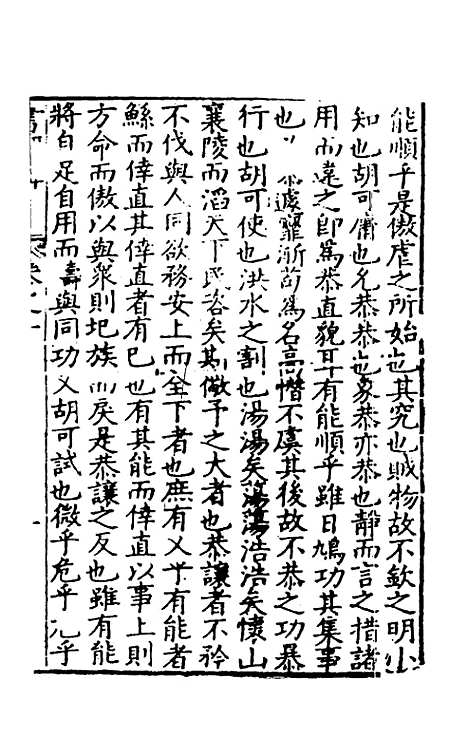 能順乎是傲虐之所始也其究也賊物故不欽之明少
知也胡可庸也允恭恭也象恭亦恭也靜而言之措諸
用而違之即為恭直貌耳有能順乎雖曰鳩功其集事
也 遽靡漸苟為名高憯不虞其後故不恭之功暴
行也胡可使也洪水之割也湯湯矣蕩蕩浩浩矣懷山
襄陵而滔天下民咨矣其儆予之大者也恭讓者不矜
不伐與人同欲務安上而全下者也庶有乂乎有能者
鯀而倖直其倖直者有巳也有其能而倖直以事上則
方命而傲以與衆則圮族而戾是恭讓之反也雖有能
將自足自用而壽與同功乂胡可試也微乎危乎 乎
卷之一